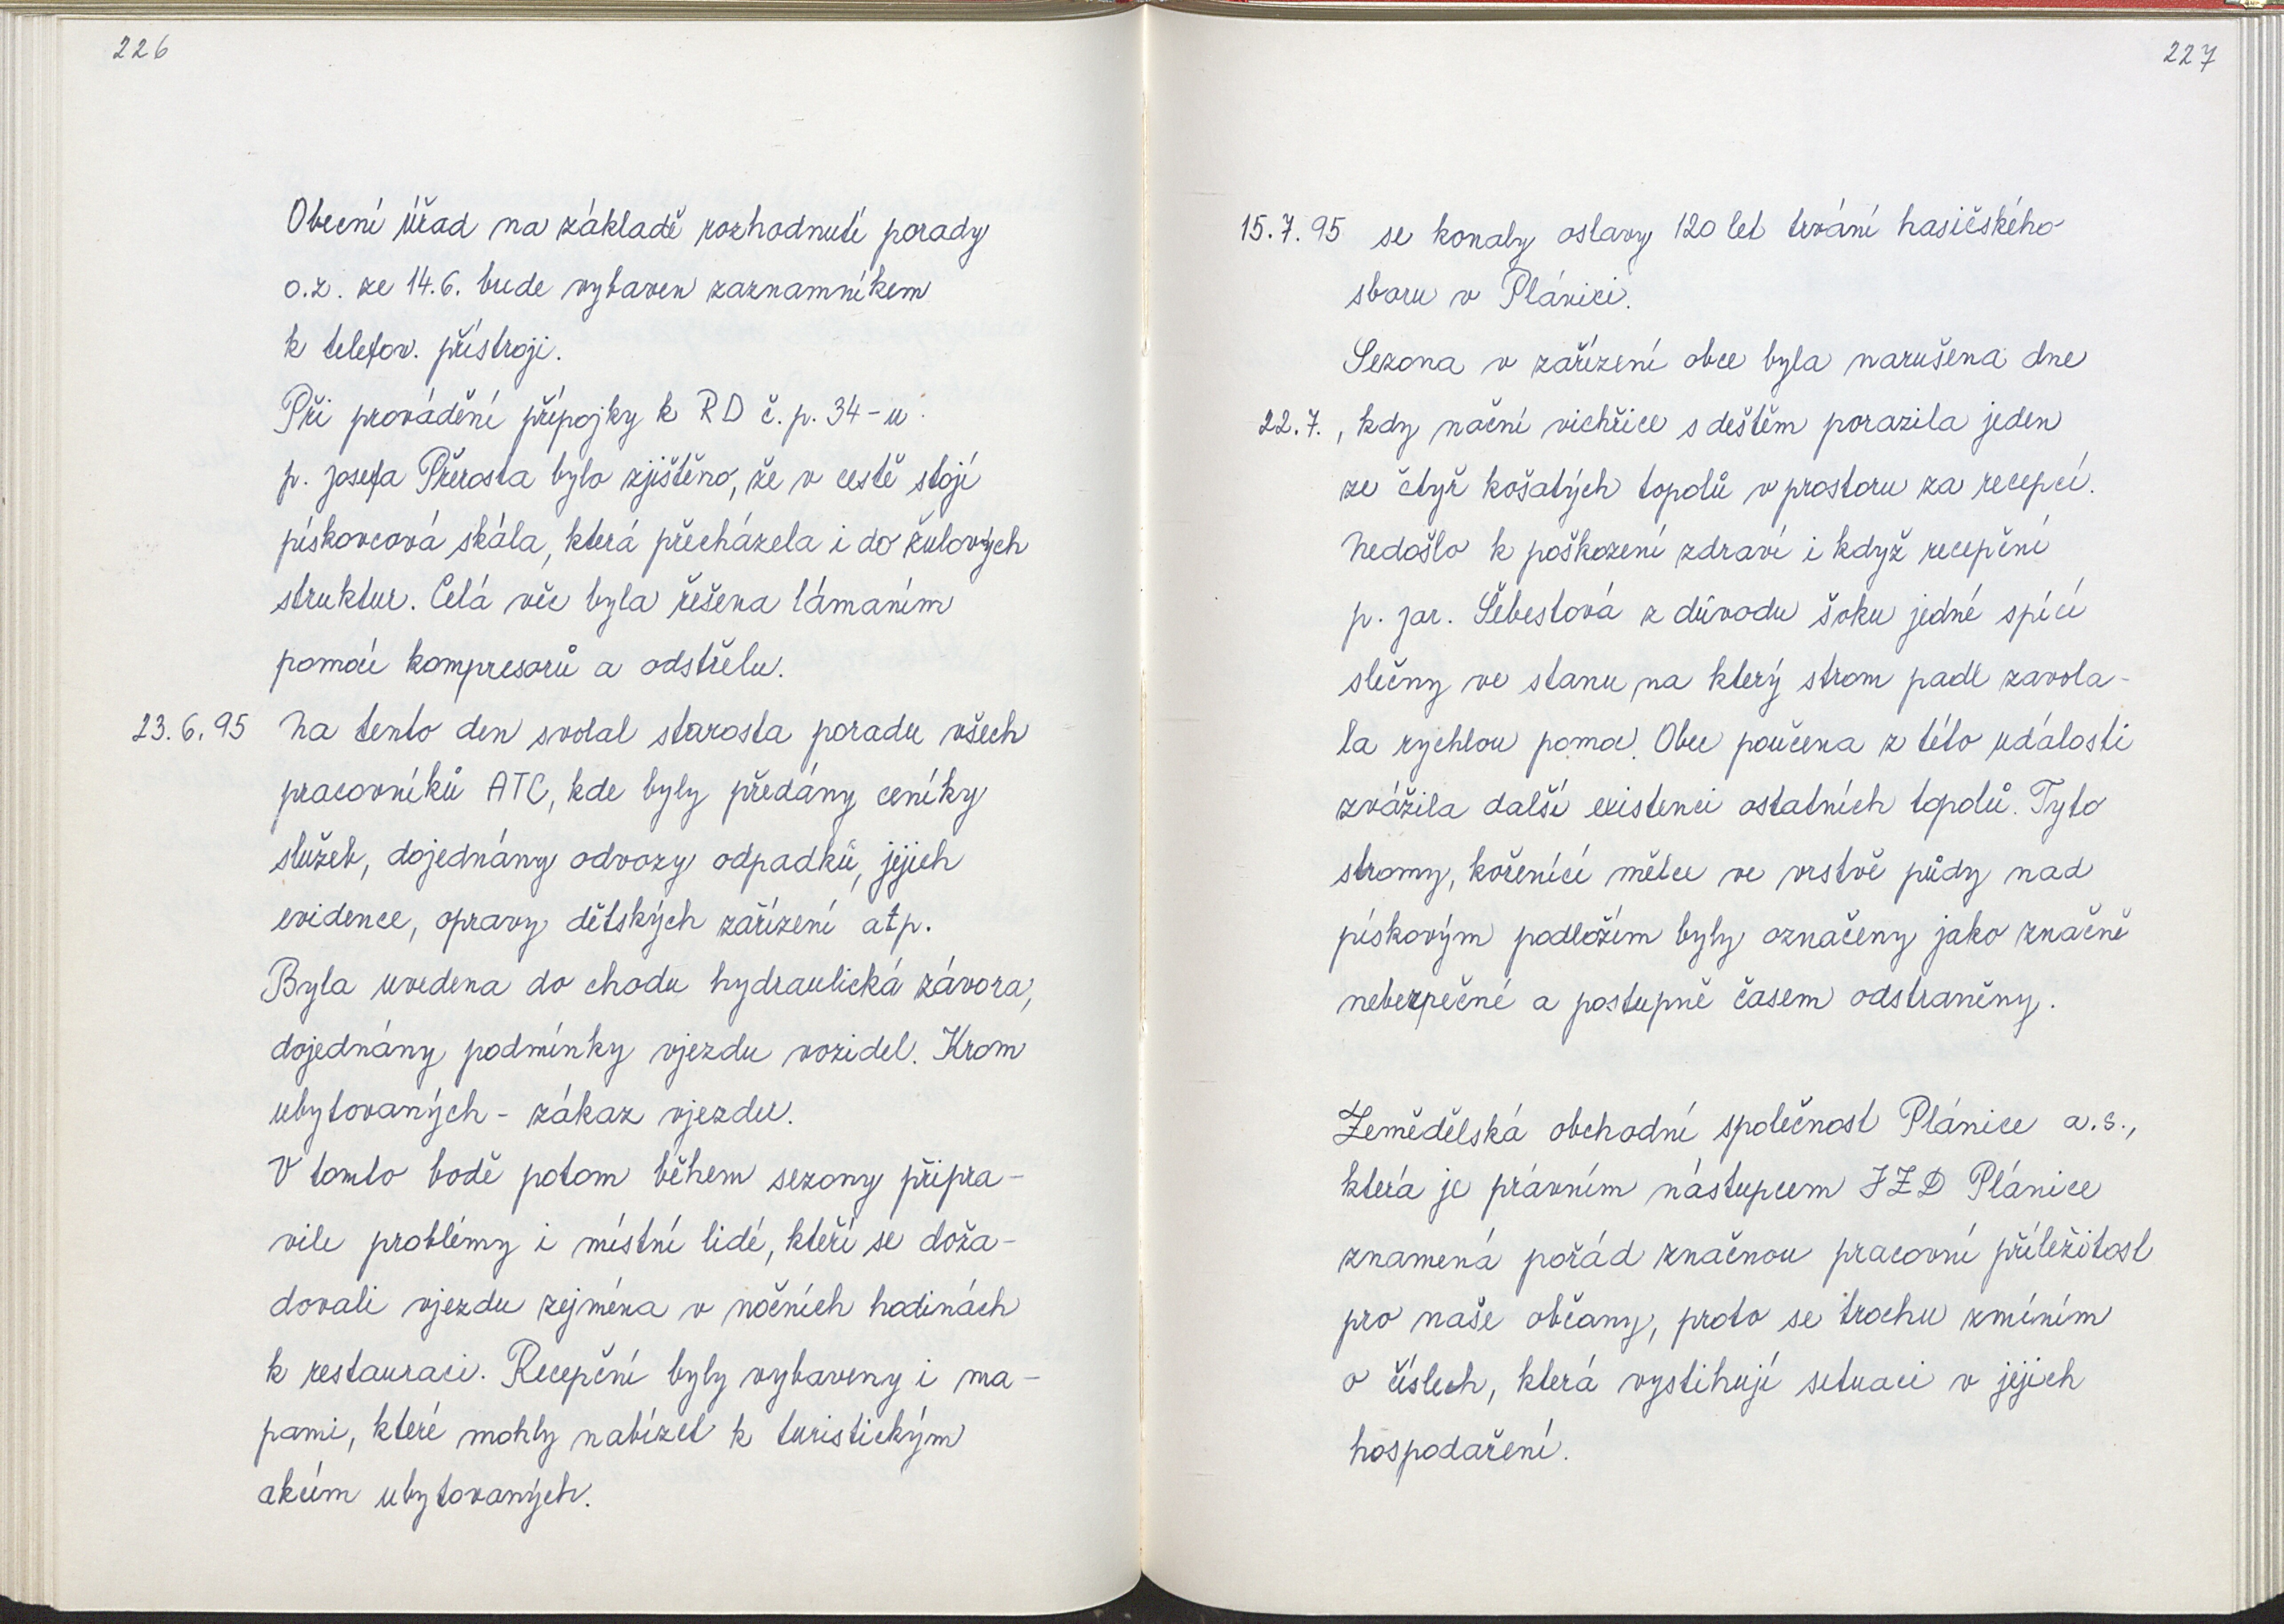 226
Obecní úřad na základě rozhodnutí porady
o.z. ze 14.6. bude vybaven zaznamníkem
k telefov. přístroji.
Při provádění přípojky k RD č.p. 34 - u
p. Josefa Přerosta bylo zjištěno, že v cestě stojí
pískovcová skála, která přecházela i do žulových
struktur. Celá věc byla řešena lámaním
pomocí kompresorů a odstřelu.
23.6.95 Na tento den svolal starosta poradu všech
pracovníků ATC, kde byly předány ceníky
služeb, dojednány odvozy odpadků, jejich
evidence, opravy dětských zařízení atp.
Byla uvedena do chodu hydraulická závora,
dojednány podmínky vjezdu vozidel. Krom
ubytovaných - zákaz vjezdu.
V tomto bodě potom během sezony připra-
vile problémy i místní lidé, kteří se doža-
dovali vjezdu zejména v nočních hodinách
k restauraci. Recepční byly vybaveny i ma-
pami, které mohly nabízet k turistickým
akcím ubytovaných.
227
15.7.95 se konaly oslavy 120 let trvání hasičského
sboru v Plánici.
Sezona v zařízení obce byla narušena dne
22.7., kdy noční vichřice s deštěm porazila jeden
ze čtyř košatých topolů v prostoru za recepcí.
Nedošlo k poškození zdraví i když recepční
p. Jar. Šebestová z důvodu šoku jedné spící
slečny ve stanu, na který strom padl zavola-
la rychlou pomoc. Obec poučena z této události
zvážila další existenci ostatních topolů. Tyto
stromy, kořenící mělce ve vrstvě půdy nad
pískovým podložím byly označeny jako značně
nebezpečné a postupně časem odstraněny.
Zemědělská obchodní společnost Plánice a.s.,
která je právním nástupcem JZD Plánice
znamená pořád značnou pracovní příležitost
pro naše občany, proto se trochu zmíním
o číslech, která vystihují situaci v jejich
hospodaření.